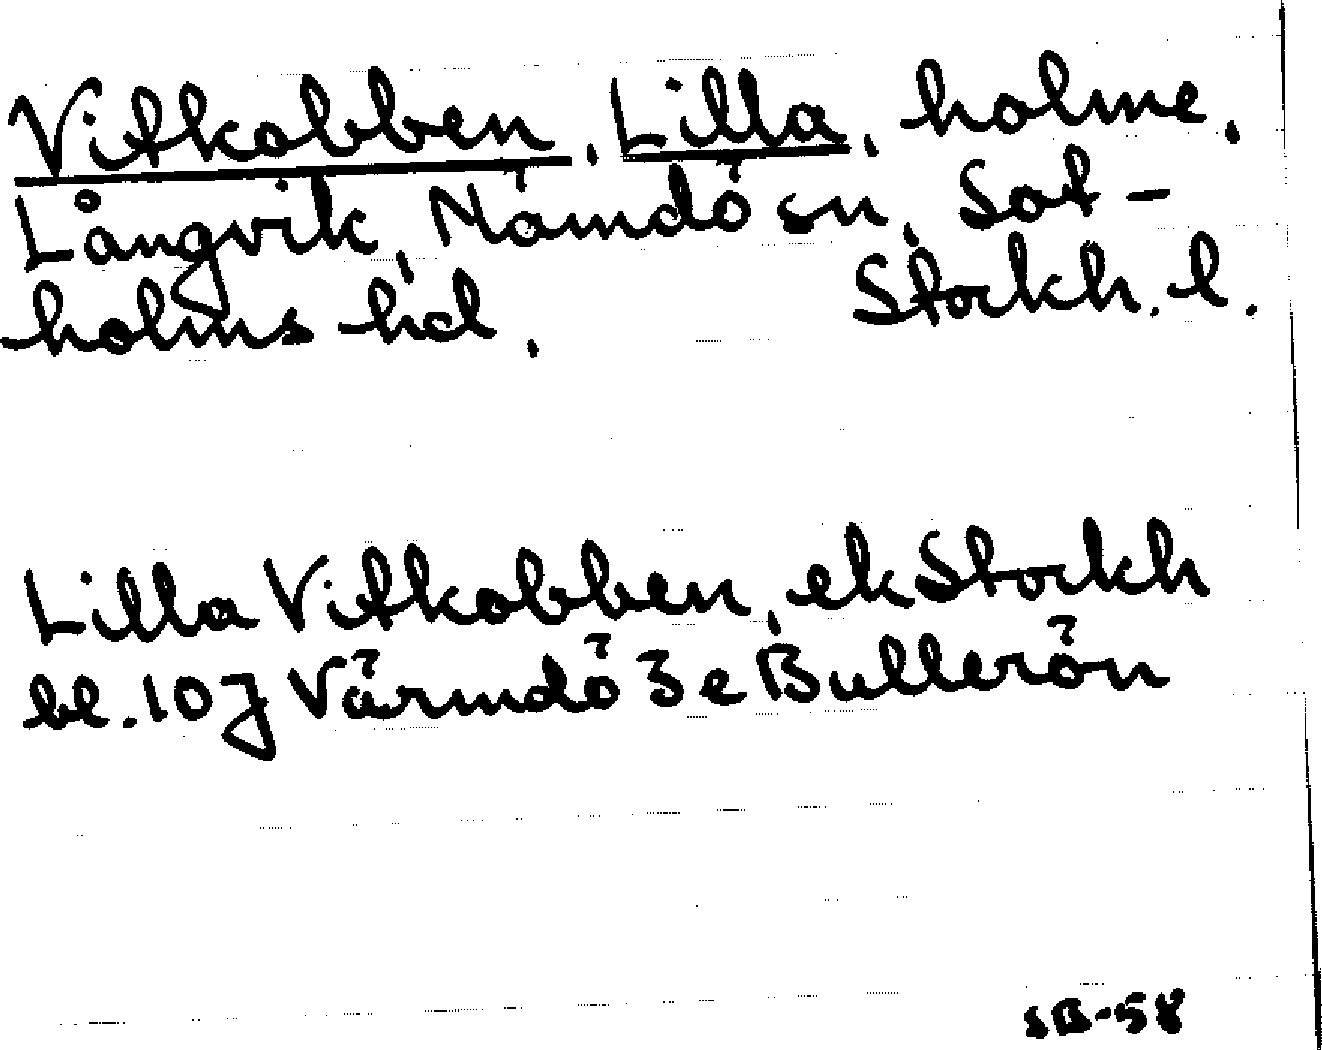 Vitkobben, Lilla, holme,
Långvik, Nämdö sn, Sot-
holms hd, Stockh. l.
Lilla Vitkobben, ek Stockh
bl. 10 J Värmdö 3 e Bullerön
SB-58